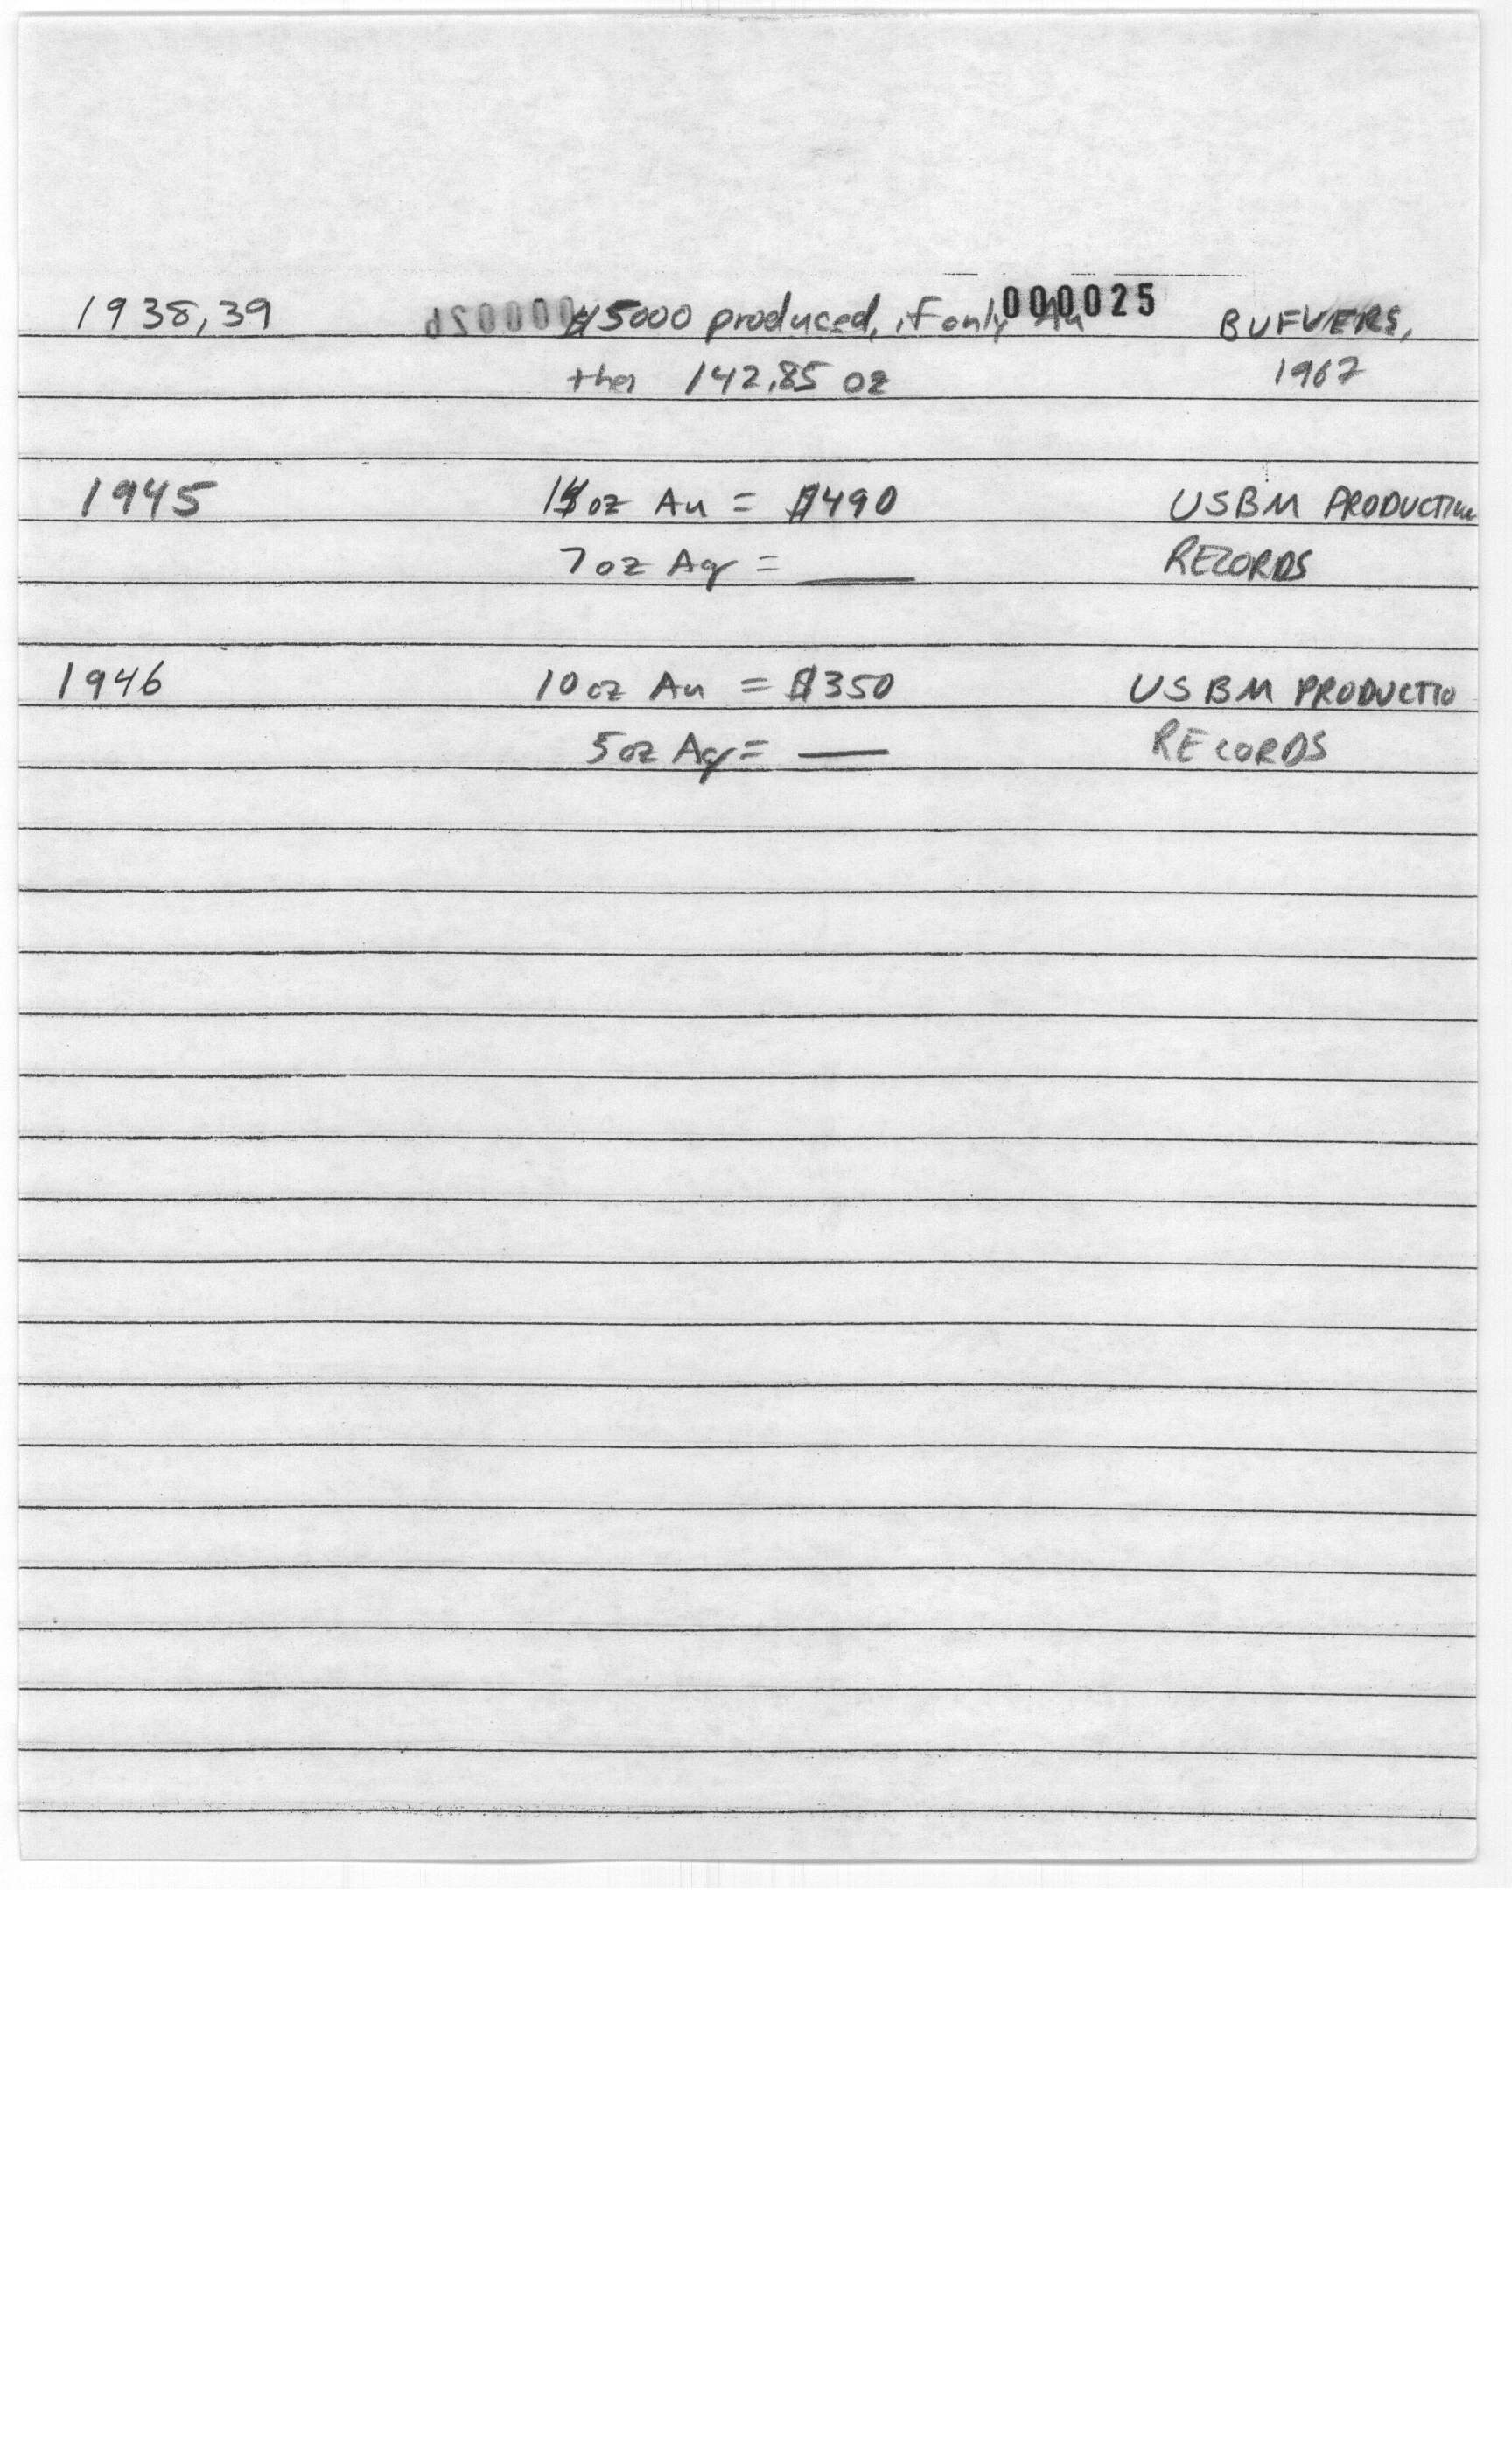 000025
1938,39 $5000 produced, if only Au BUFVERS,
then 142.85 oz 1967
1945 14 oz Au = $490 USBM PRODUCTION
7 oz Ag = ___ RECORDS
1946 10 oz Au = $350 USBM PRODUCTIO
5 oz Ag = ___ RECORDS